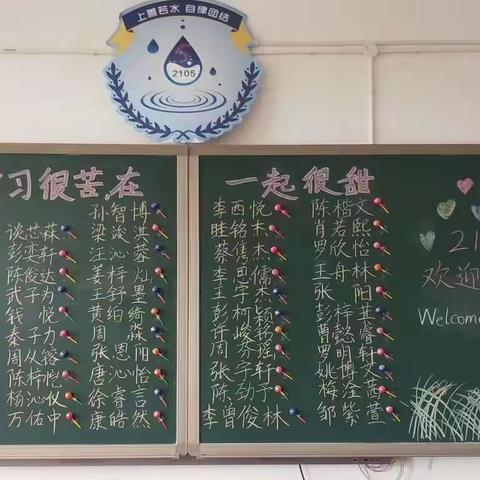 上善若水 自律团结
2105
习很苦,在
一起很甜
孙智博
梁浚淇
汪沁蓉
姜梓灿
王舒墨
黄珀绮
周淼
张恩阳
唐沁怡
徐睿言
康皓然
陈俊达
武子为
钱悦
秦子力
周从镕
陈梓恺
杨沁仪
万佑中
李西悦
蔡隽杰
李思儒
王宇杰
彭柯颖
李曾俊林
陈楷文
肖若熙
罗欣怡
王舟林
张阳
彭梓其
曹懿睿
罗明轩
姚博文
梅淦茜
邹紫萱
21
欢迎
Welcome